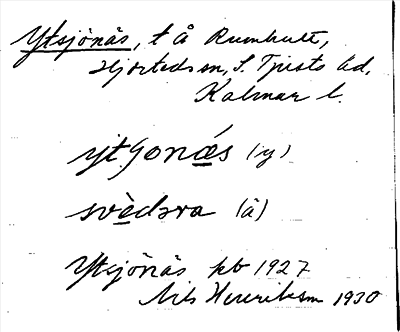 Ytsjönäs, t å Rumhult,
Hjorteds sn, S. Tjusts hd,
Kalmar l.
ytʃonǽs (y)
svèdɜra (ä)
Ytsjönäs pb 1927
Nils Henriksson 1930